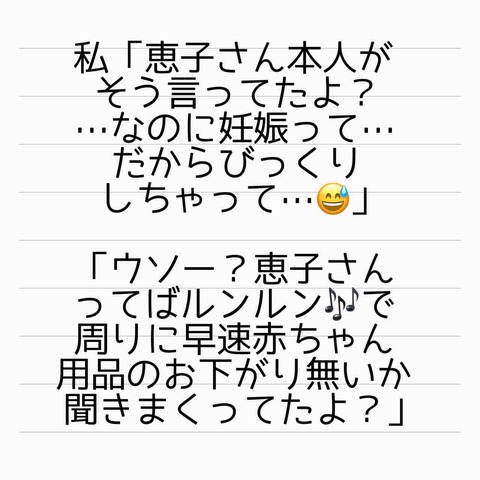 私「恵子さん本人が
そう言ってたよ？
…なのに妊娠って…
だからびっくり
しちゃって…😅」
「ウソー？恵子さん
ってばルンルン🎶で
周りに早速赤ちゃん
用品のお下がり無いか
聞きまくってたよ？」